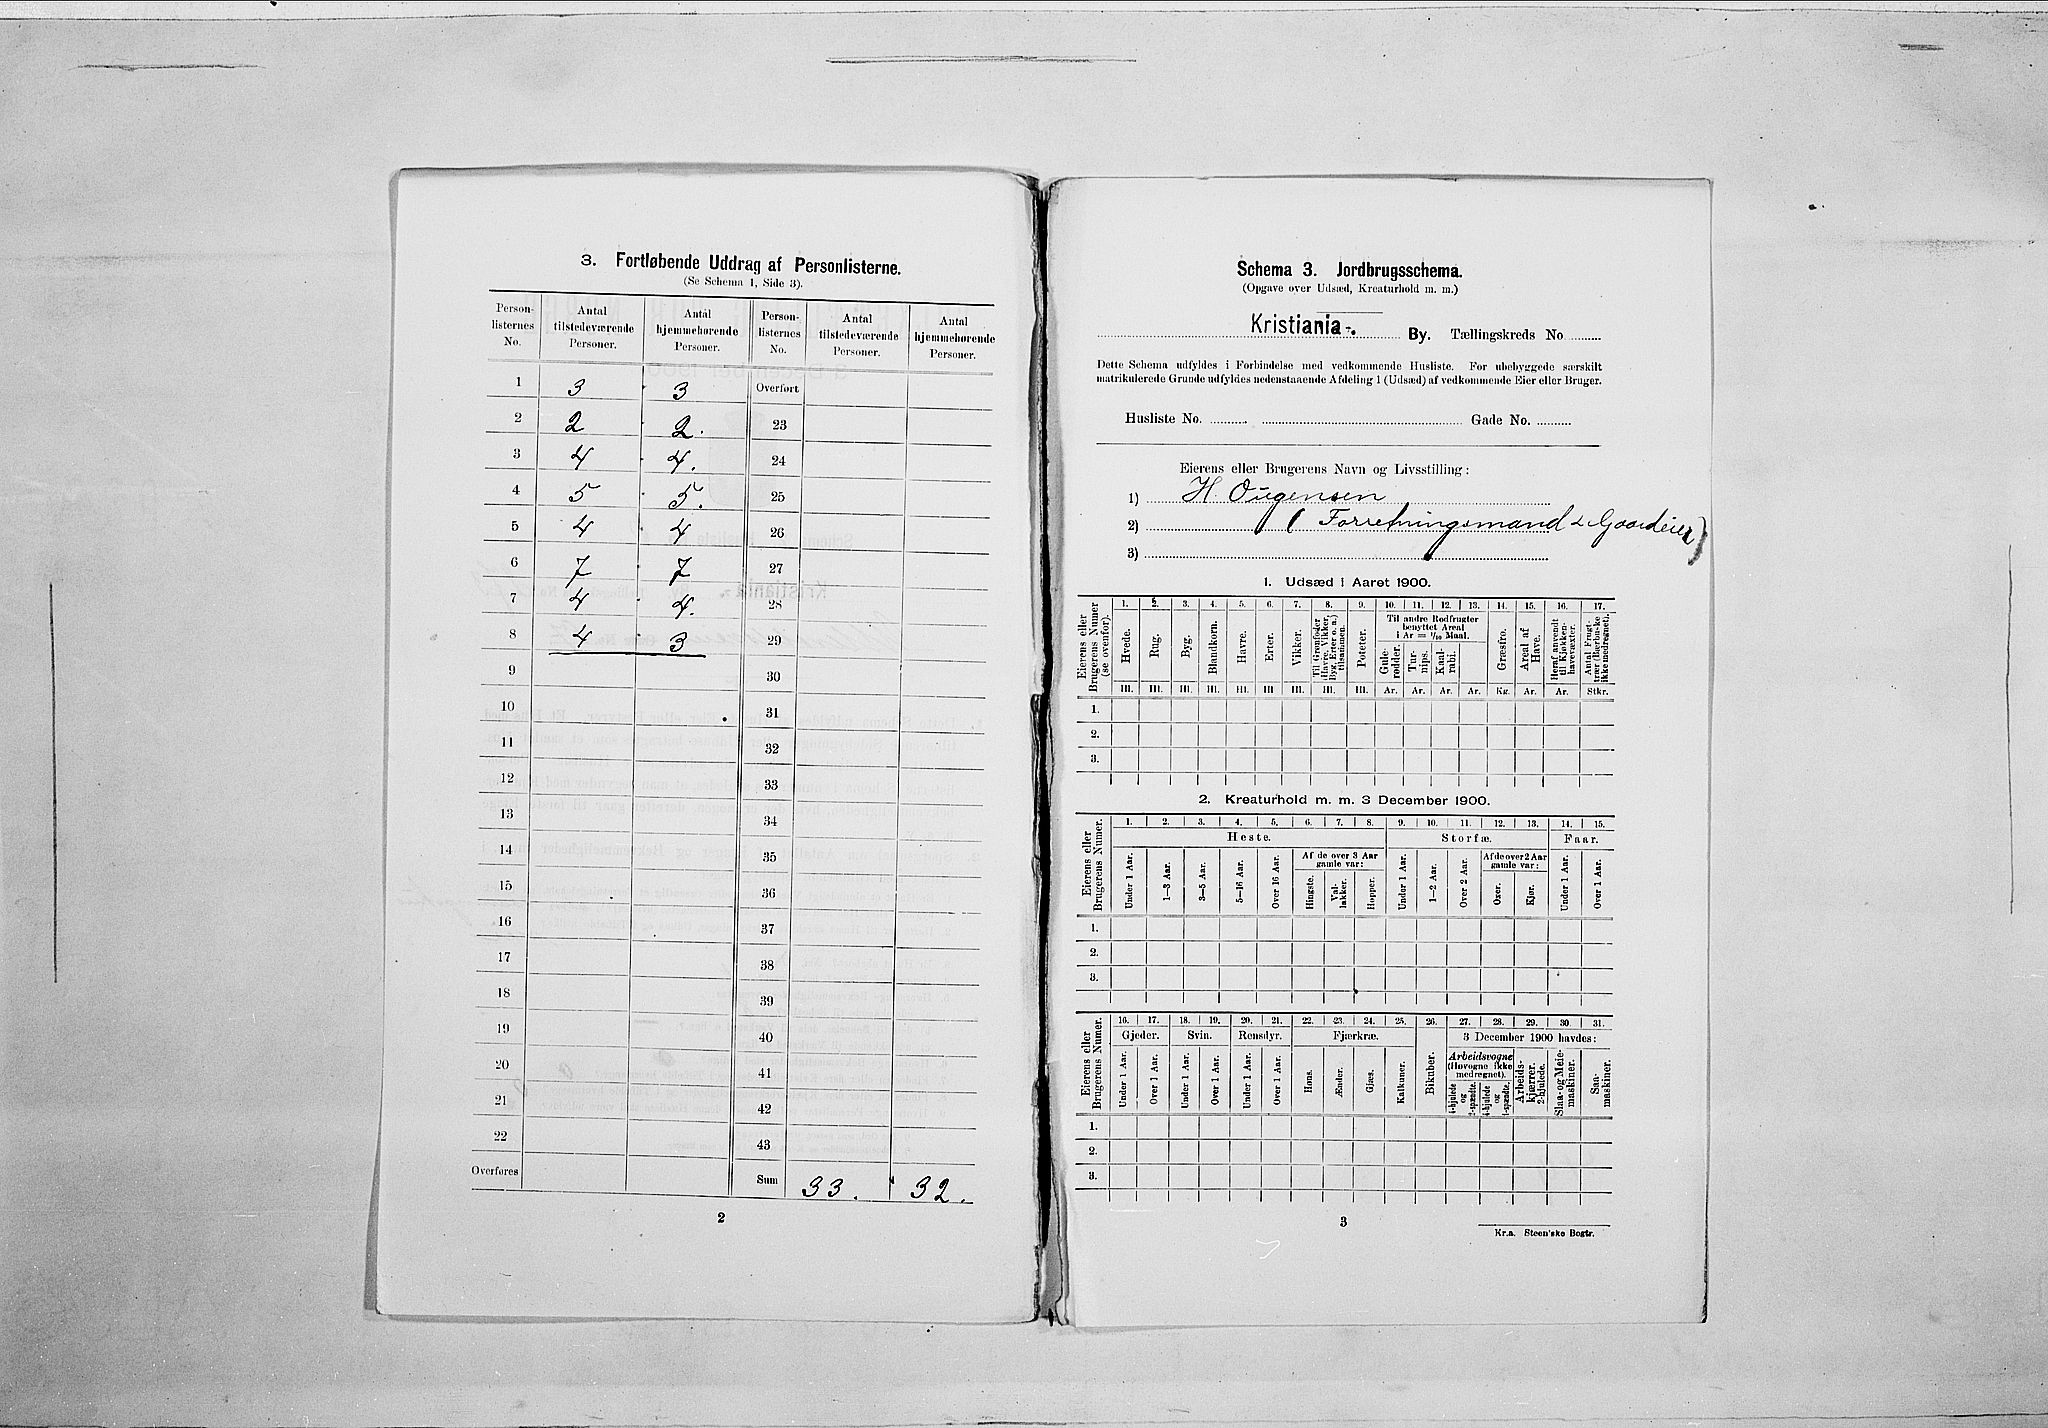 3. Fortløbende Uddrag af Personlisterne.
(Se Schema 1, Side 3).
Person-listernes No. | Antal tilstedeværende Personer. | Antal hjemmehørende Personer. | Person-listernes No. | Antal tilstedeværende Personer. | Antal hjemmehørende Personer.
1 | 3 | 3 | Overført
2 | 2 | 2. | 23
3 | 4 | 4. | 24
4 | 5 | 5. | 25
5 | 4 | 4 | 26
6 | 7 | 7 | 27
7 | 4 | 4. | 28
8 | 4 | 3 | 29
9 | 30
10 | 31
11 | 32
12 | 33
13 | 34
14 | 35
15 | 36
16 | 37
17 | 38
18 | 39
19 | 40
20 | 41
21 | 42
22 | 43
Overføres | Sum | 33. | 32.
2
Schema 3. Jordbrugsschema.
(Opgave over Udsæd, Kreaturhold m. m.)
Kristiania. By. Tællingskreds No
Dette Schema udfyldes i Forbindelse med vedkommende Husliste. For ubebyggede særskilt
matrikulerede Grunde udfyldes nedenstaaende Afdeling 1 (Udsæd) af vedkommende Eier eller Bruger.
Husliste No. Gade No.
Eierens eller Brugerens Navn og Livsstilling:
1) H. Ougensen
2) (Forretningsmand & Gaardeier)
3)
1. Udsæd i Aaret 1900.
Eierens eller Brugerens Numer (se ovenfor).
1. 2. 3. 4. 5. 6. 7. 8. 9. 10. 11. 12. 13. 14. 15. 16. 17.
Hvede. Rug. Byg. Blandkorn. Havre. Erter. Vikker. Til Grønfoder (Havre, Vikker, Byg, Erter o. a.) tilsammen. Poteter.
Til andre Rodfrugter benyttet Areal i Ar = 1/10 Maal.
Gulerødder. Turnips. Kaalrabi. Græsfrø. Areal af Have. Heraf anvendt til Kjøkkenhavevæxter. Antal Frugttrær (Bærbuske ikke medregnet).
Hl. Hl. Hl. Hl. Hl. Hl Hl. Hl. Hl. Ar. Ar. Ar. Ar. Kg. Ar. Ar. Stkr.
1.
2.
3.
2. Kreaturhold m. m. 3 December 1900.
Eierens eller Brugerens Numer.
1. 2. 3. 4. 5. 6. 7. 8. 9. 10. 11. 12. 13. 14. 15.
Heste. Storfæ. Faar.
Under 1 Aar. 1–3 Aar. 3–5 Aar. 5–16 Aar. Over 16 Aar. Af de over 3 Aar gamle var: Hingste. Vallakker. Hopper.
Under 1 Aar. 1–2 Aar. Over 2 Aar. Af de over 2 Aar gamle var: Oxer. Kjør. Under 1 Aar. Over 1 Aar.
1.
2.
3.
Eierens eller Brugerens Numer.
16. 17. 18. 19. 20. 21. 22. 23. 24. 25. 26. 27. 28. 29. 30. 31.
Gjeder. Svin. Rensdyr. Fjærkræ. 3 December 1900 havdes:
Under 1 Aar. Over 1 Aar. Under 1 Aar. Over 1 Aar. Under 1 Aar. Over 1 Aar. Høns. Ænder. Gjæs. Kalkuner. Bikuber.
Arbeidsvogne (Hovogne ikke medregnet). 4-hjulede og 2-spændte. 4-hjulede og 1-spændte. Arbeidskjærrer. 2-hjulede. Slaa- og Meiemaskiner. Saamaskiner.
1.
2.
3.
3
Kr.a. Steen'ske Bogtr.